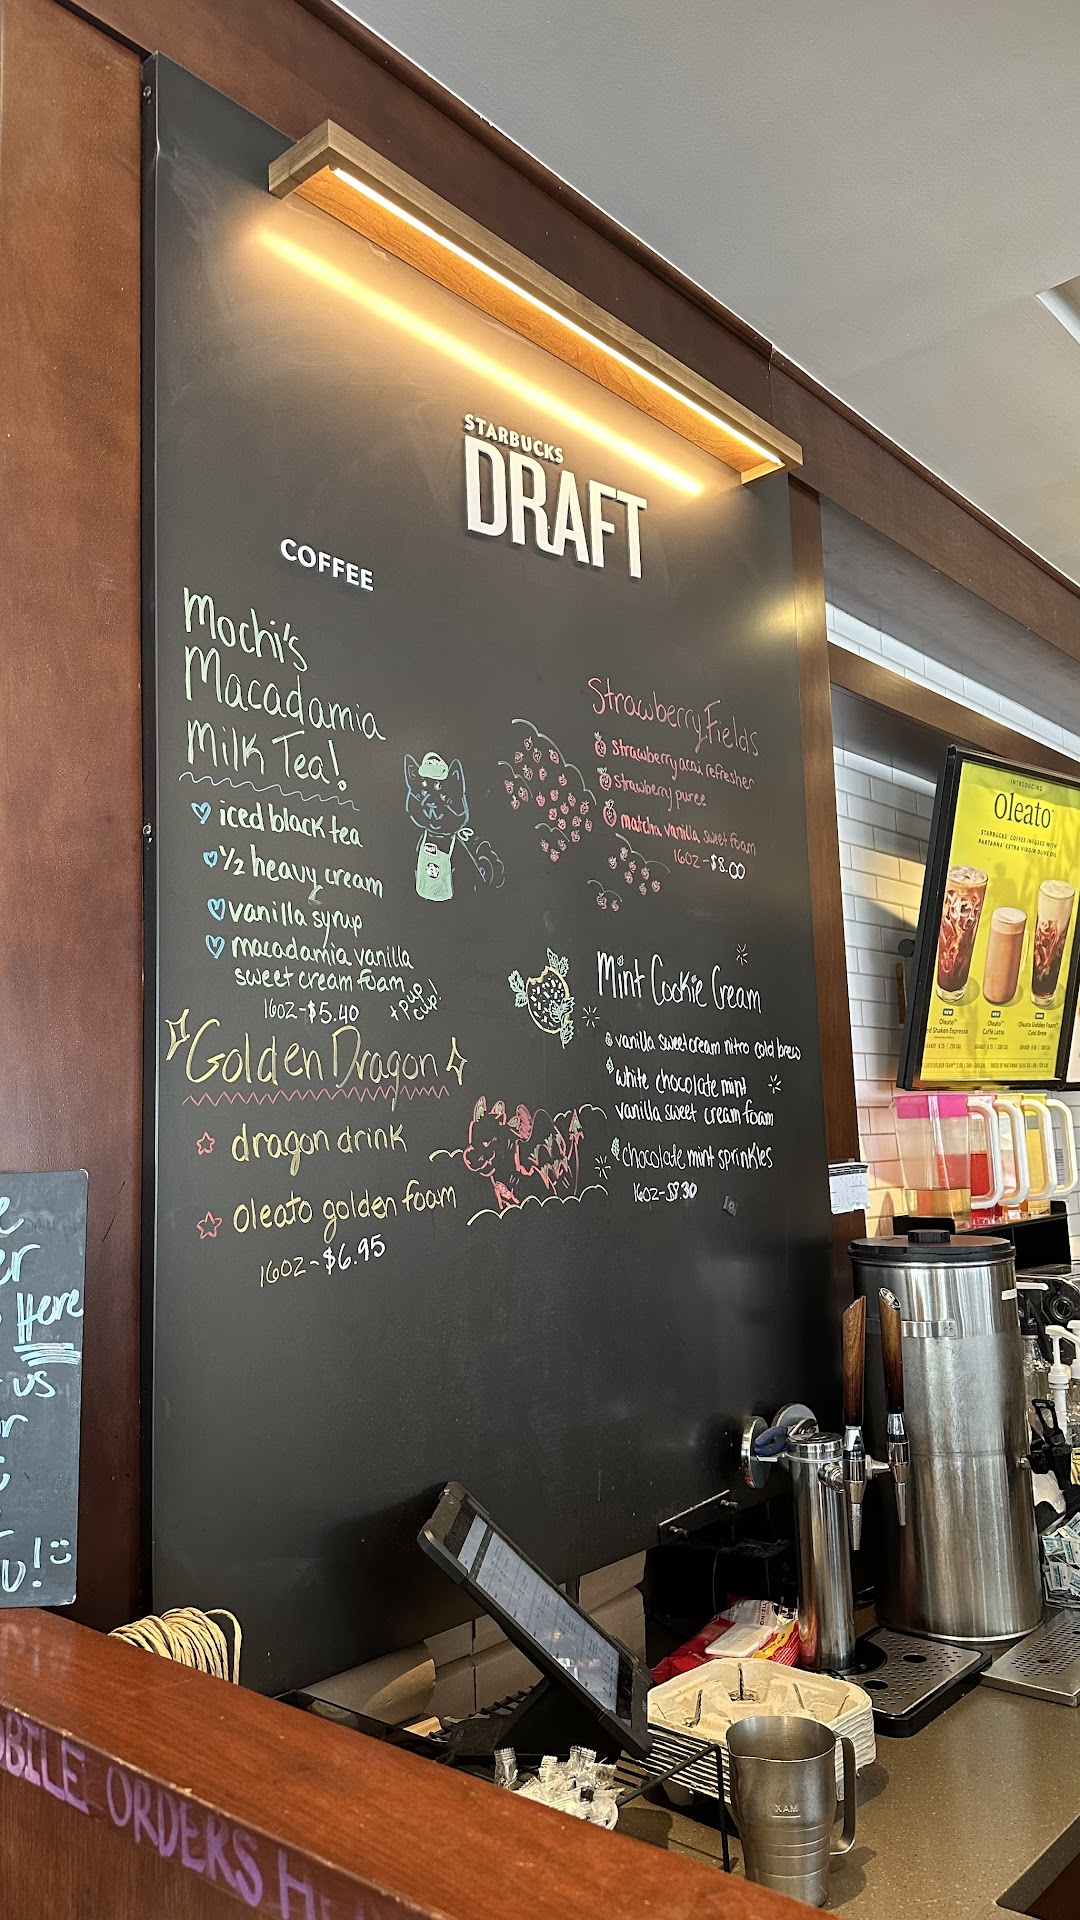 STARBUCKS
DRAFT
COFFEE
Mochi's
Macadamia
Milk Tea!
iced black tea
1/2 heavy cream
vanilla syrup
macadamia vanilla
sweet cream foam
16oz-$5.40
+ pup
cup!
Golden Dragon
dragon drink
oleato golden foam
16oz-$6.95
Strawberry Fields
strawberry acai refresher
strawberry puree
matcha vanilla sweet foam
16oz-$8.00
Mint Cookie Cream
vanilla sweet cream nitro cold brew
white chocolate mint
vanilla sweet cream foam
chocolate mint sprinkles
16oz-$8.30
INTRODUCING
Oleato
STARBUCKS COFFEE INFUSED WITH
PARTANNA EXTRA VIRGIN OLIVE OIL
NEW
Oleato
Shaken Espresso
NEW
Oleato
Caffè Latte
NEW
Oleato Golden Foam
Cold Brew
Here
us
U! :)
ORDERS